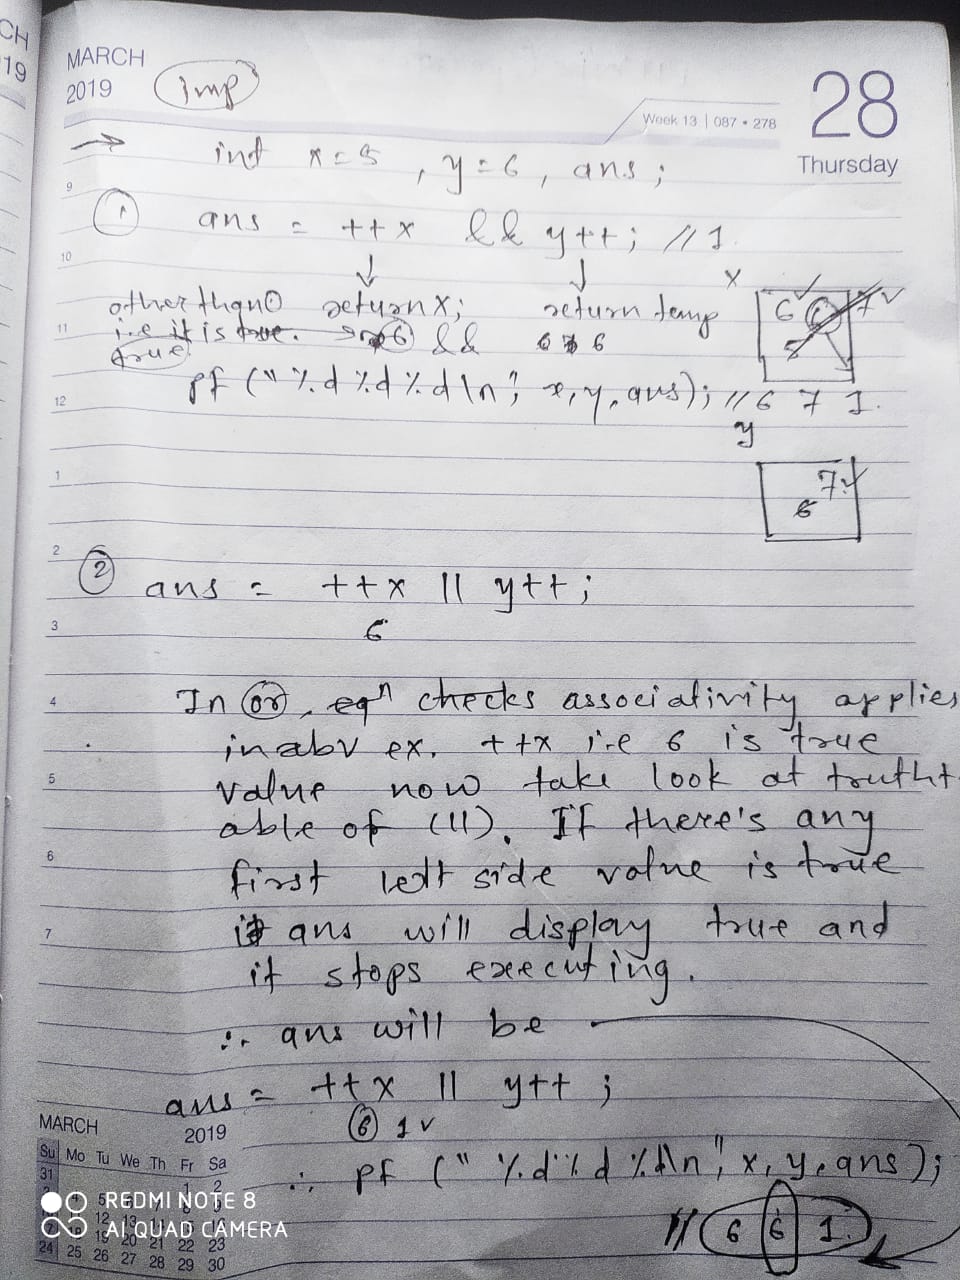 CH
19
MARCH
2019
imp
Week 13 | 087 • 278
28
Thursday
→ int x=5, y=6, ans;
9
① ans = ++x && y++; // 1.
10
↓ ↓ x
other than 0 return x; return temp 6 7
11 i.e it is true. 6 && 6
true
pf ("%d %d %d \n", x, y, ans); // 6 7 1.
12
y
1
7
6
2
② ans = ++x || y++;
3
6
4 In or, eqn checks associativity applies
in abv ex. ++x i.e 6 is true
5 value now take look at trutht
able of (||). If there's any
6 first left side value is true
7 ans will display true and
it stops executing.
∴ ans will be
ans = ++x || y++;
6 1
MARCH 2019
Su Mo Tu We Th Fr Sa
31 1 2
∴ pf ("%d %d %d\n", x, y, ans);
REDMI NOTE 8
AI QUAD CAMERA
19 20 21 22 23
24 25 26 27 28 29 30
// 6 6 1.